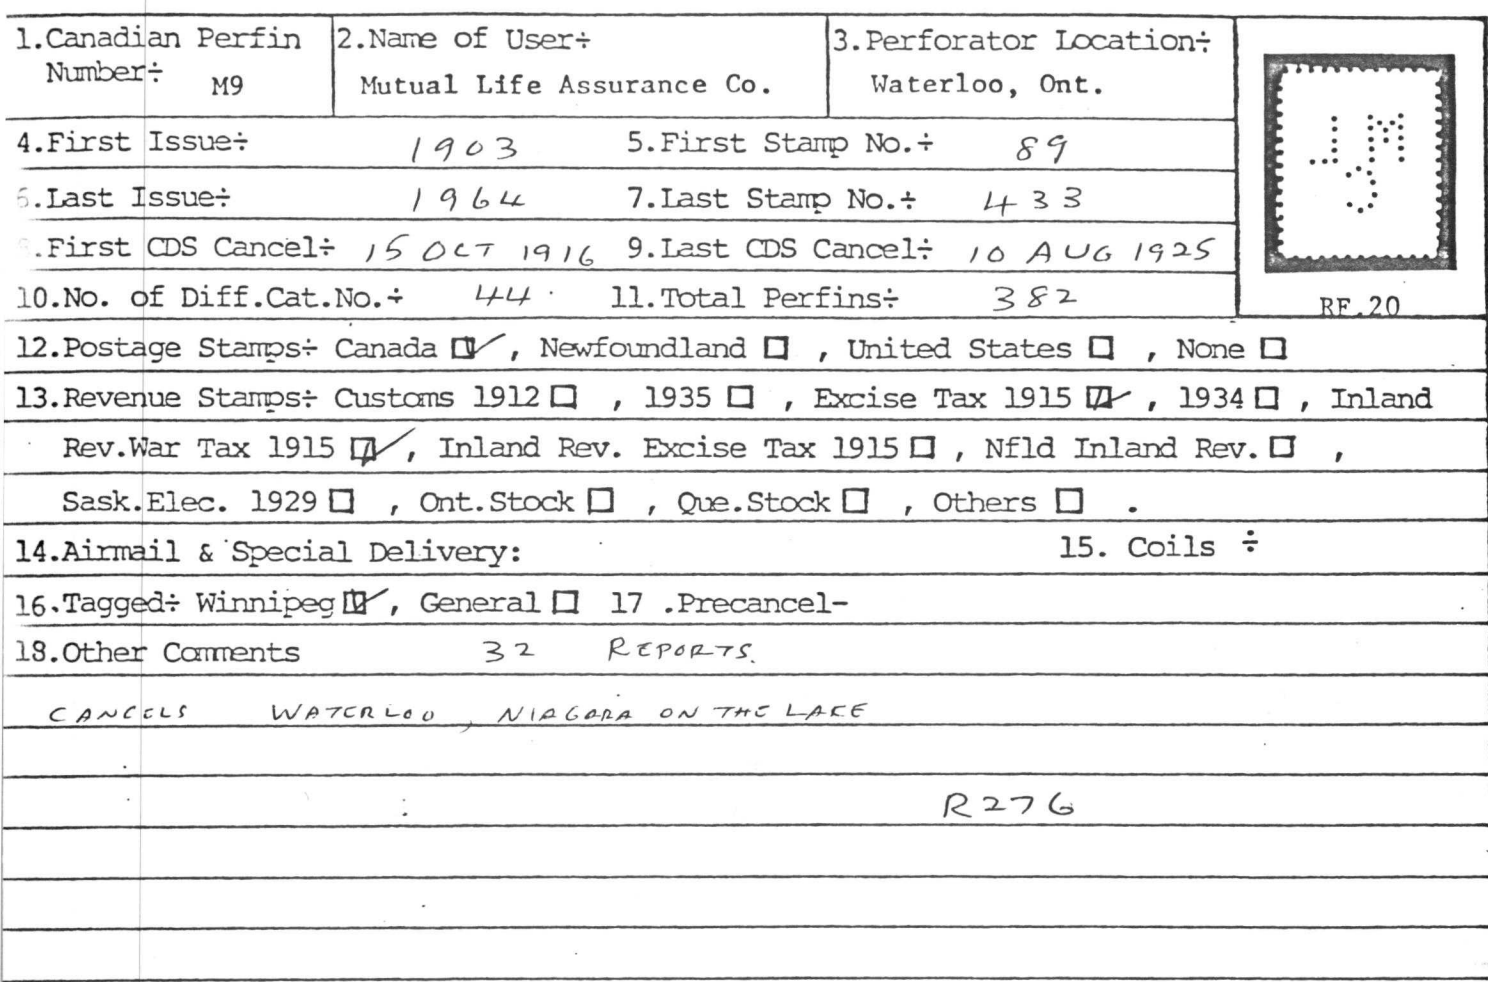 1.Canadian Perfin Number÷ M9
2.Name of User÷ Mutual Life Assurance Co.
3.Perforator Location÷ Waterloo, Ont.
4.First Issue÷ 1903 5.First Stamp No.÷ 89
6.Last Issue÷ 1964 7.Last Stamp No.÷ 433
.First CDS Cancel÷ 15 OCT 1916 9.Last CDS Cancel÷ 10 AUG 1925
10.No. of Diff.Cat.No.÷ 44 11.Total Perfins÷ 382
RF.20
12.Postage Stamps÷ Canada ☑, Newfoundland ☐, United States ☐, None ☐
13.Revenue Stamps÷ Customs 1912 ☐, 1935 ☐, Excise Tax 1915 ☑, 1934 ☐, Inland
Rev.War Tax 1915 ☑, Inland Rev. Excise Tax 1915 ☐, Nfld Inland Rev. ☐,
Sask.Elec. 1929 ☐, Ont.Stock ☐, Que.Stock ☐, Others ☐.
14.Airmail & Special Delivery: 15. Coils ÷
16.Tagged÷ Winnipeg ☑, General ☐ 17 .Precancel-
18.Other Comments 32 REPORTS.
CANCELS WATERLOO, NIAGARA ON THE LAKE
R276